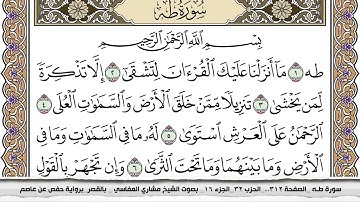 سُورَةُ طه
بِسْمِ ٱللَّهِ ٱلرَّحْمَٰنِ ٱلرَّحِيمِ
طه ١ مَآ أَنزَلْنَا عَلَيْكَ ٱلْقُرْءَانَ لِتَشْقَىٰٓ ٢ إِلَّا تَذْكِرَةً
لِّمَن يَخْشَىٰ ٣ تَنزِيلًا مِّمَّنْ خَلَقَ ٱلْأَرْضَ وَٱلسَّمَٰوَٰتِ ٱلْعُلَى ٤
ٱلرَّحْمَٰنُ عَلَى ٱلْعَرْشِ ٱسْتَوَىٰ ٥ لَهُۥ مَا فِى ٱلسَّمَٰوَٰتِ وَمَا فِى
ٱلْأَرْضِ وَمَا بَيْنَهُمَا وَمَا تَحْتَ ٱلثَّرَىٰ ٦ وَإِن تَجْهَرْ بِٱلْقَوْلِ
سورة طه .. الصفحة ٣١٢.. الحزب ٣٢ .. الجزء ١٦ .. بصوت الشيخ مشاري العفاسي .. بالقصر برواية حفص عن عاصم